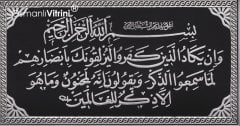 OsmanlıVitrini
بسم الله الرحمن الرحيم
وإن يكاد الذين كفروا ليزلقونك بأبصارهم
لما سمعوا الذكر ويقولون إنه لمجنون وما هو
إلا ذكر للعالمين